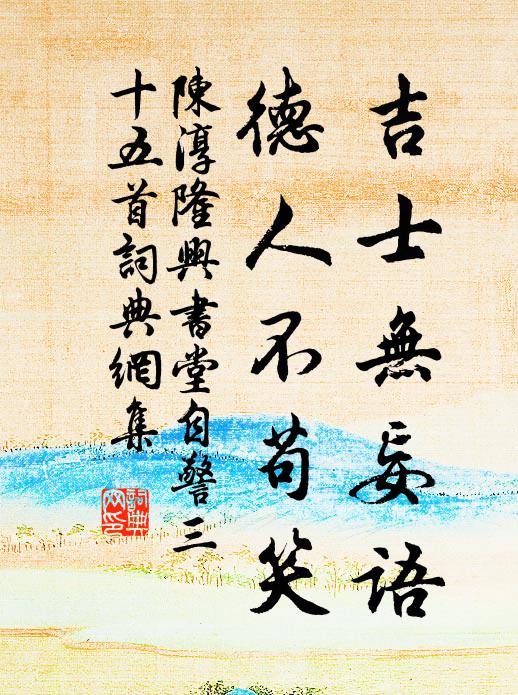 吉士無妄語
德人不苟笑
陳淳隆興書堂自警三
十五首詞典網集